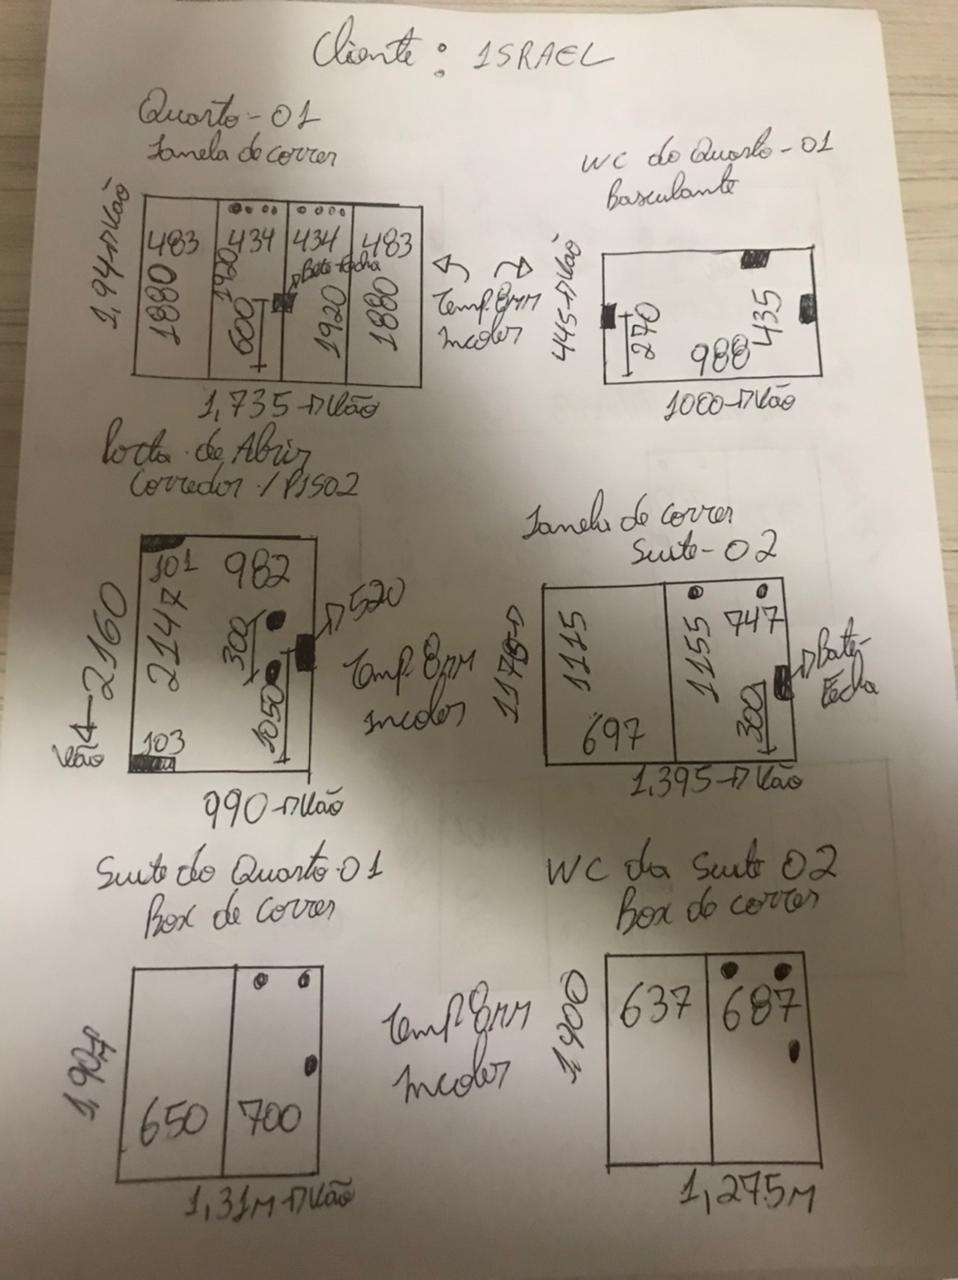 Cliente: ISRAEL
Quarto-01
Janela de correr
1,94→Vão
483 434 434 483
1880 1920 1920 1880
Bate-fecha
600
1,735→Vão
Temp. 8mm
Incolor
WC do Quarto-01
Basculante
445→Vão
270
988
435
1000→Vão
Porta de Abrir
Corredor / PISO2
Vão←2160
101
982
2147
300
→520
1050
103
990→Vão
Temp. 8mm
Incolor
Janela de correr
Suite-02
1115
1155
747
→Bate-
Fecha
697
300
1,395→Vão
Suite do Quarto-01
Box de Correr
650
700
1,31M→Vão
Temp. 8mm
Incolor
WC da Suite 02
Box de correr
1,900
637
687
1,275M